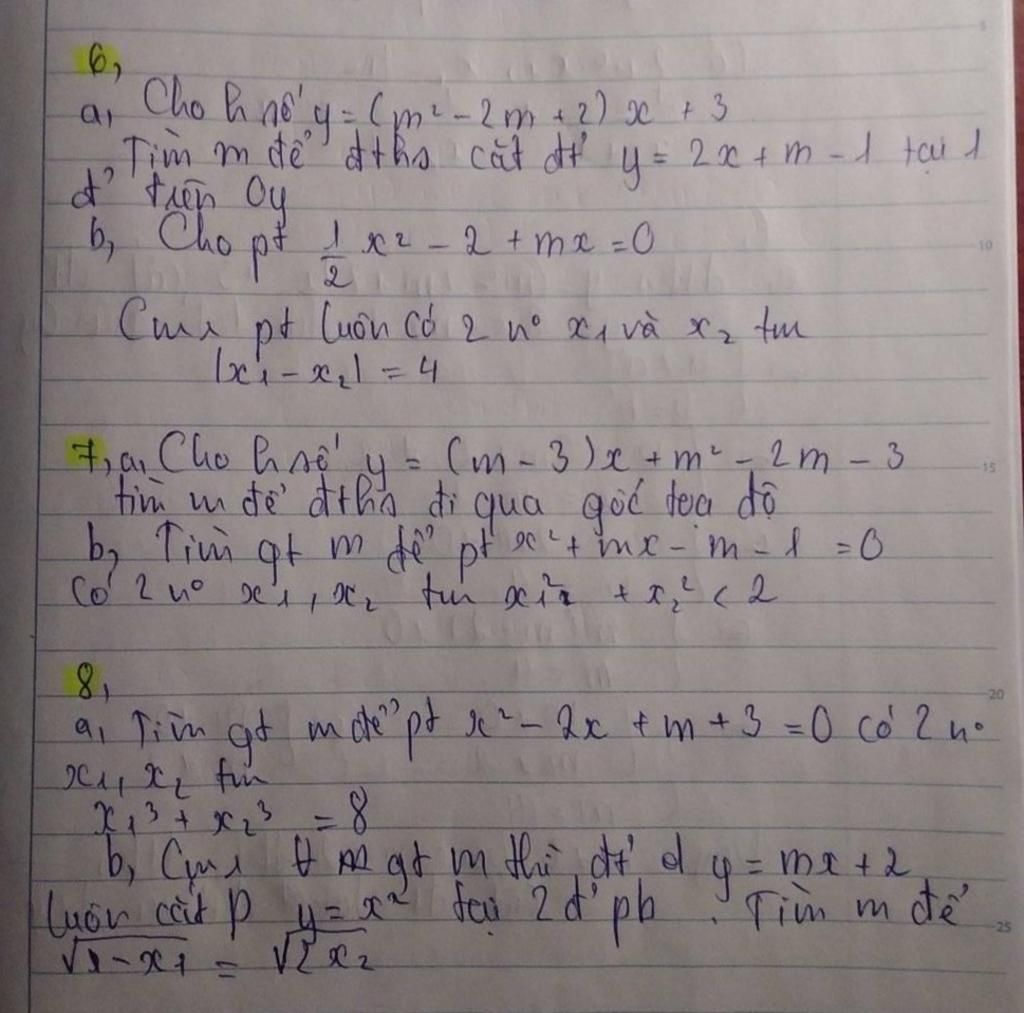 6,
a, Cho h số y = (m² - 2m + 2) x + 3
Tìm m để đths cắt đt y = 2x + m - 1 tại 1
đ' trên Oy
b, Cho pt 1/2 x² - 2 + mx = 0
Cmr pt luôn có 2 n⁰ x₁ và x₂ tm
|x₁ - x₂| = 4
7, a, Cho h số y = (m - 3)x + m² - 2m - 3
tìm m để đths đi qua gốc tọa độ
b, Tìm gt m để pt x² + mx - m - 1 = 0
Có 2 n⁰ x₁, x₂ tm x₁² + x₂² < 2
8,
a, Tìm gt m để pt x² - 2x + m + 3 = 0 có 2 n⁰
x₁, x₂ tm
x₁³ + x₂³ = 8
b, Cmr ∀ gt m thì đt d y = mx + 2
luôn cắt P y = x² tại 2 đ' pb. Tìm m để
√1-x₁ = √2x₂
5
10
15
20
25